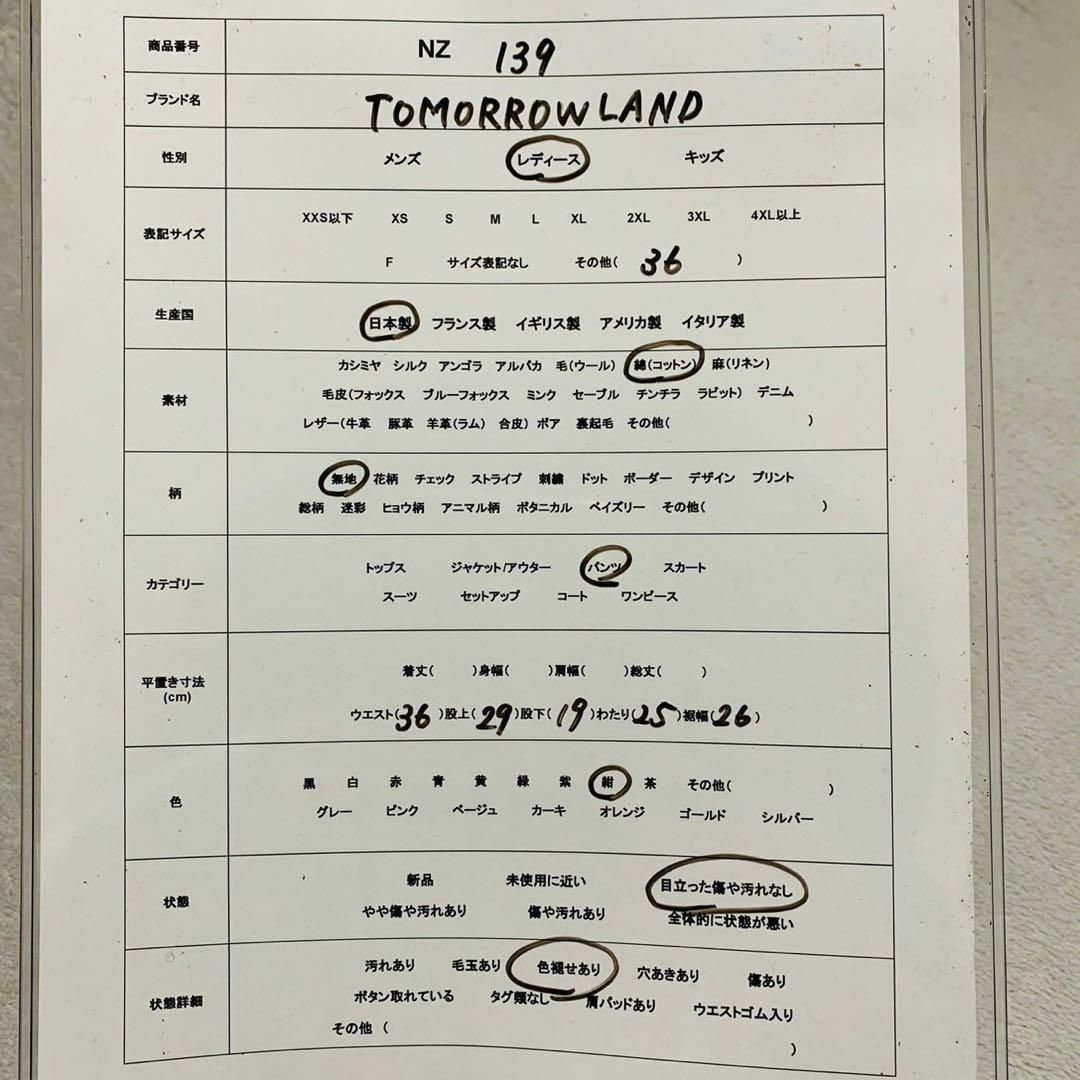 商品番号 NZ 139
ブランド名 TOMORROWLAND
性別 メンズ レディース キッズ
XXS以下 XS S M L XL 2XL 3XL 4XL以上
表記サイズ
F サイズ表記なし その他( 36 )
生産国 日本製 フランス製 イギリス製 アメリカ製 イタリア製
カシミヤ シルク アンゴラ アルパカ 毛(ウール) 綿(コットン) 麻(リネン)
素材 毛皮(フォックス ブルーフォックス ミンク セーブル チンチラ ラビット) デニム
レザー(牛革 豚革 羊革(ラム) 合皮) ボア 裏起毛 その他( )
無地 花柄 チェック ストライプ 刺繍 ドット ボーダー デザイン プリント
柄
総柄 迷彩 ヒョウ柄 アニマル柄 ボタニカル ペイズリー その他( )
トップス ジャケット/アウター パンツ スカート
カテゴリー
スーツ セットアップ コート ワンピース
着丈( )身幅( )肩幅( )総丈( )
平置き寸法
(cm)
ウエスト(36)股上(29)股下(19)わたり(25)裾幅(26)
黒 白 赤 青 黄 緑 紫 紺 茶 その他( )
色
グレー ピンク ベージュ カーキ オレンジ ゴールド シルバー
新品 未使用に近い 目立った傷や汚れなし
状態
やや傷や汚れあり 傷や汚れあり 全体的に状態が悪い
汚れあり 毛玉あり 色褪せあり 穴あきあり 傷あり
状態詳細 ボタン取れている タグ類なし 肩パッドあり ウエストゴム入り
その他 ( )